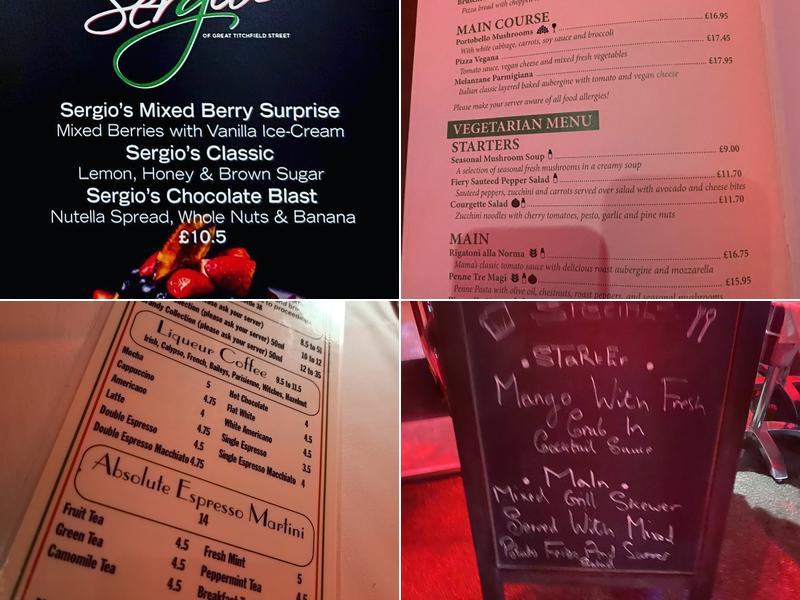 Sergio's
OF GREAT TITCHFIELD STREET
Sergio's Mixed Berry Surprise
Mixed Berries with Vanilla Ice-Cream
Sergio's Classic
Lemon, Honey & Brown Sugar
Sergio's Chocolate Blast
Nutella Spread, Whole Nuts & Banana
£10.5
Pizza bread with chopped
MAIN COURSE
Portobello Mushrooms £16.95
With white cabbage, carrots, soy sauce and broccoli
Pizza Vegana £17.45
Tomato sauce, vegan cheese and mixed fresh vegetables
Melanzane Parmigiana £17.95
Italian classic layered baked aubergine with tomato and vegan cheese
Please make your server aware of all food allergies!
VEGETARIAN MENU
STARTERS
Seasonal Mushroom Soup £9.00
A selection of seasonal fresh mushrooms in a creamy soup
Fiery Sauteed Pepper Salad £11.70
Sauteed peppers, zucchini and carrots served over salad with avocado and cheese bites
Courgette Salad £11.70
Zucchini noodles with cherry tomatoes, pesto, garlic and pine nuts
MAIN
Rigatoni alla Norma £16.75
Mama's classic tomato sauce with delicious roast aubergine and mozzarella
Penne Tre Magi £15.95
Penne Pasta with olive oil, chestnuts, roast peppers, and seasonal mushrooms
Collection (please ask your server) 50ml 8.5 to 51
Brandy Collection (please ask your server) 50ml 10 to 12
12 to 35
Liqueur Coffee 9.5 to 11.5
Irish, Calypso, French, Baileys, Parisienne, Witches, Hazelnut
Mocha 5
Cappuccino 4.75
Americano 4
Latte 4.75
Double Espresso 4.5
Double Espresso Macchiato 4.75
Hot Chocolate 4
Flat White 4.5
White Americano 4.5
Single Espresso 3.5
Single Espresso Macchiato 4
Absolute Espresso Martini
14
Fruit Tea 4.5
Green Tea 4.5
Camomile Tea 4.5
Fresh Mint 5
Peppermint Tea 4.5
Breakfast
SPECIAL
• STaRtEr •
Mango With Fresh
Crab In
Cocktail Sauce
• Main •
Mixed Grill Skewer
Served With Mixed
Potato Fries And Summer
Salad